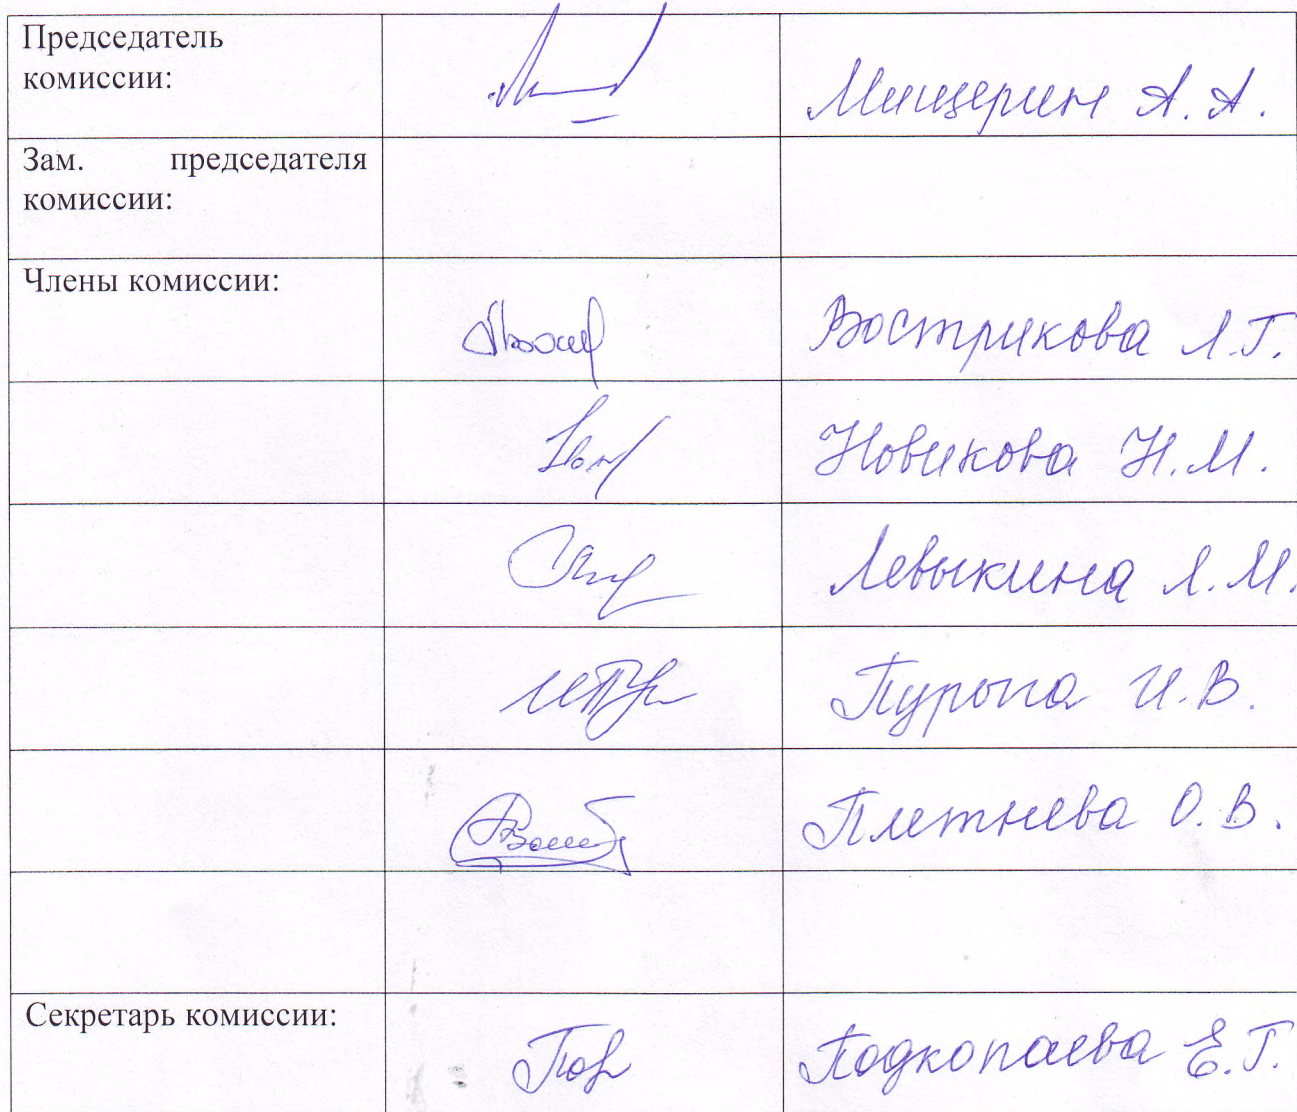 Председатель
комиссии:
Мищерин А. А.
Зам. председателя
комиссии:
Члены комиссии:
Вострикова Л.Г.
Новикова Н.М.
Левыкина Л.М.
И.В.
Плетнева О.В.
Секретарь комиссии:
Подкопаева Е.Г.